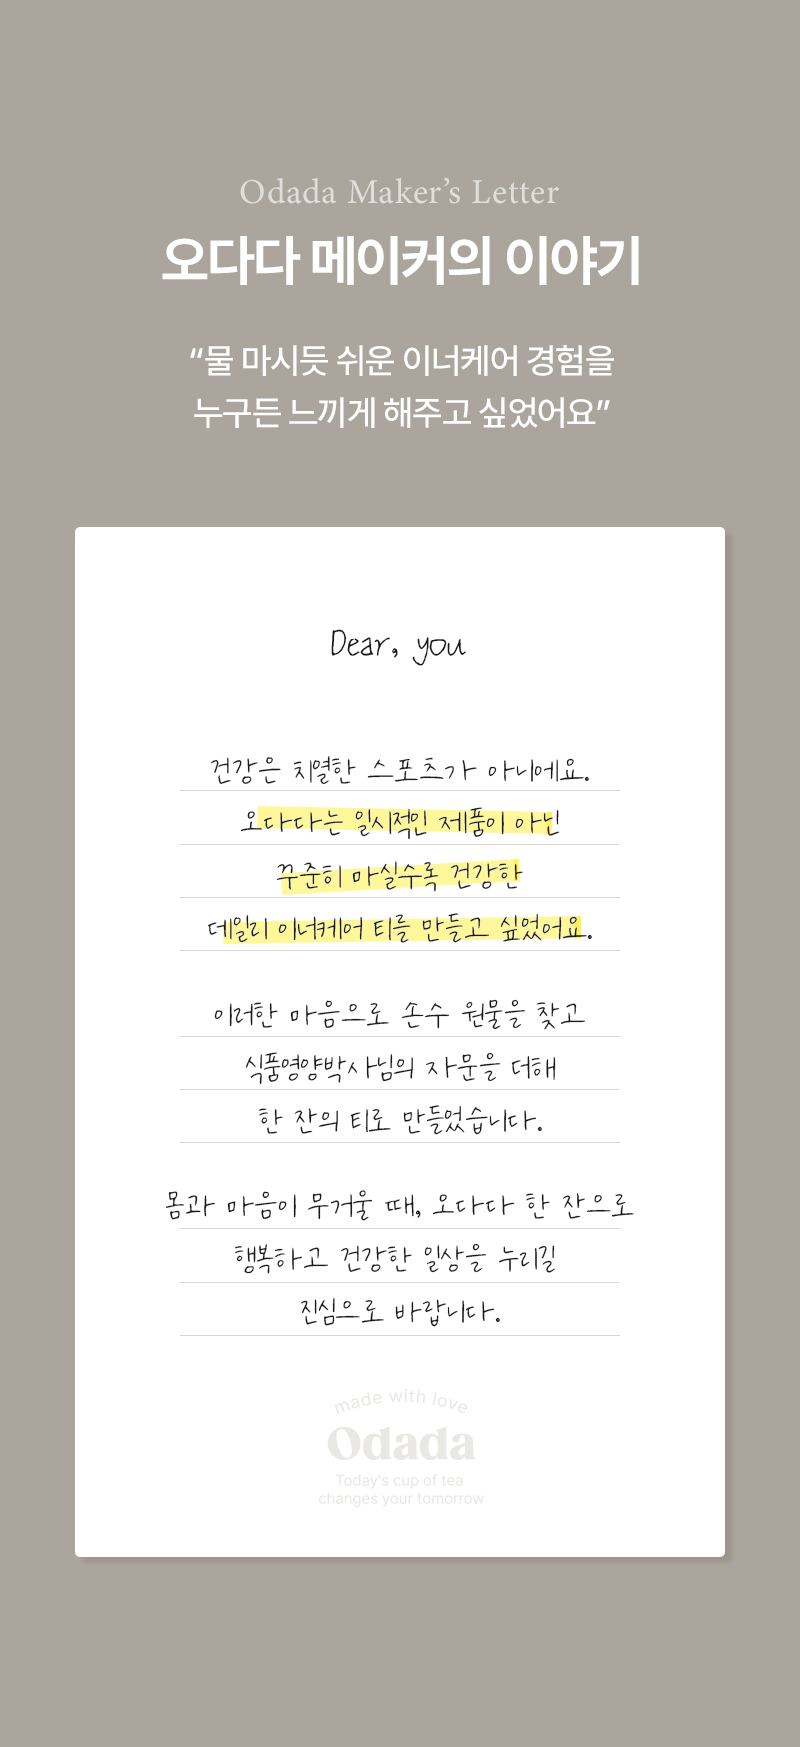 Odada Maker’s Letter
오다다 메이커의 이야기
“물 마시듯 쉬운 이너케어 경험을
누구든 느끼게 해주고 싶었어요”
Dear, you
건강은 치열한 스포츠가 아니에요.
오다다는 일시적인 제품이 아닌
꾸준히 마실수록 건강한
데일리 이너케어 티를 만들고 싶었어요.
이러한 마음으로 손수 원물을 찾고
식품영양박사님의 자문을 더해
한 잔의 티로 만들었습니다.
몸과 마음이 무거울 때, 오다다 한 잔으로
행복하고 건강한 일상을 누리길
진심으로 바랍니다.
made with love
Odada
Today's cup of tea
changes your tomorrow